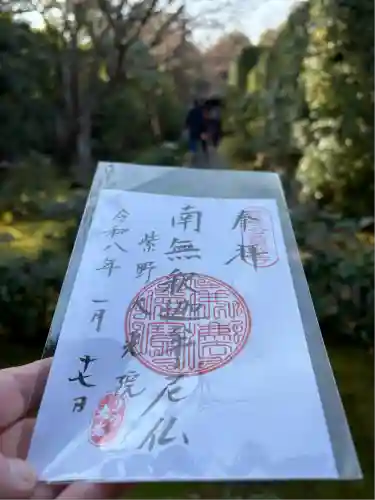 奉拝
南無釈迦牟尼仏
紫野 大光院
令和八年 一月 十七日